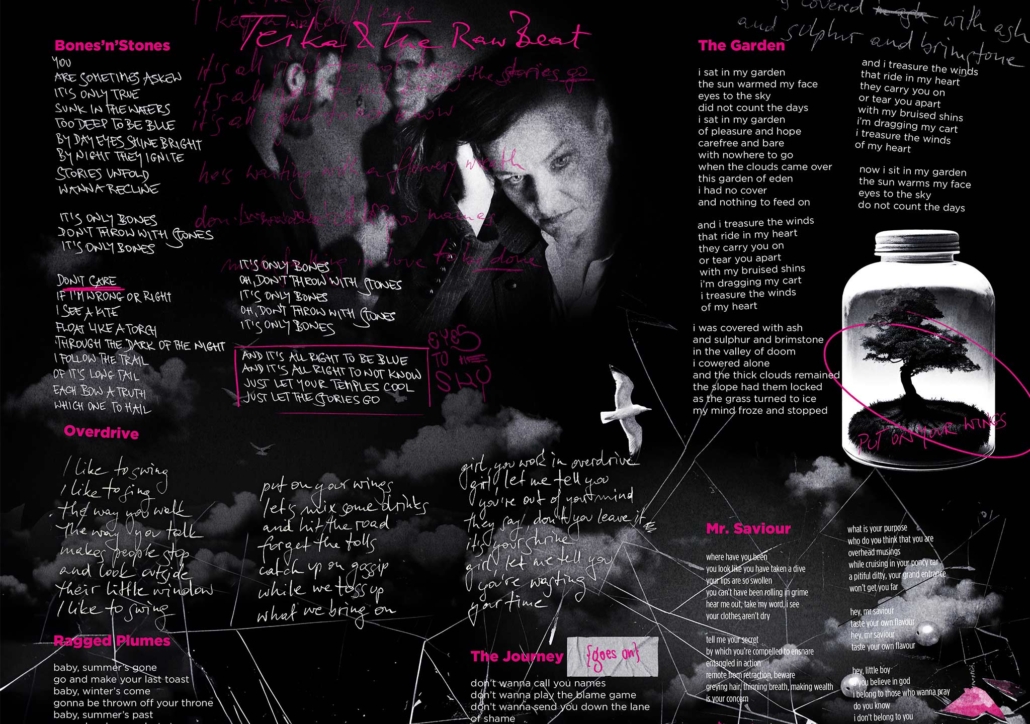 y covered with ash
and sulphur and brimstone
Teika & the Raw Beat
Bones'n'Stones
YOU
ARE SOMETIMES ASKEW
IT'S ONLY TRUE
SUNK IN THE WATERS
TOO DEEP TO BE BLUE
BY DAY EYES SHINE BRIGHT
BY NIGHT THEY IGNITE
STORIES UNFOLD
WANNA RECLINE
IT'S ONLY BONES
DON'T THROW WITH STONES
IT'S ONLY BONES
DON'T CARE
IF I'M WRONG OR RIGHT
I SEE A KITE
FLOAT LIKE A TORCH
THROUGH THE DARK OF THE NIGHT
I FOLLOW THE TRAIL
OF IT'S LONG TAIL
EACH BOW A TRUTH
WHICH ONE TO HAIL
IT'S ONLY BONES
OH, DON'T THROW WITH STONES
IT'S ONLY BONES
OH, DON'T THROW WITH STONES
IT'S ONLY BONES
AND IT'S ALL RIGHT TO BE BLUE
AND IT'S ALL RIGHT TO NOT KNOW
JUST LET YOUR TEMPLES COOL
JUST LET THE STORIES GO
EYES
TO
SHY
the stories go
Overdrive
I like to swing
I like to sing
the way you walk
the way you talk
makes people stop
and look outside
their little window
I like to swing
put on your wings
let's mix some drinks
and hit the road
forget the tolls
catch up on gossip
while we toss up
what we bring on
girl, you work in overdrive
girl let me tell you
you're out of your mind
they say, don't you leave it
it's your shrine
girl let me tell you
you're wasting
your time
Ragged Plumes
baby, summer's gone
go and make your last toast
baby, winter's come
gonna be thrown off your throne
baby, summer's past
The Journey {goes on}
don't wanna call you names
don't wanna play the blame game
don't wanna send you down the lane
of shame
The Garden
i sat in my garden
the sun warmed my face
eyes to the sky
did not count the days
i sat in my garden
of pleasure and hope
carefree and bare
with nowhere to go
when the clouds came over
this garden of eden
i had no cover
and nothing to feed on
and i treasure the winds
that ride in my heart
they carry you on
or tear you apart
with my bruised shins
i'm dragging my cart
i treasure the winds
of my heart
i was covered with ash
and sulphur and brimstone
in the valley of doom
i cowered alone
and the thick clouds remained
the slope had them locked
as the grass turned to ice
my mind froze and stopped
and i treasure the winds
that ride in my heart
they carry you on
or tear you apart
with my bruised shins
i'm dragging my cart
i treasure the winds
of my heart
now i sit in my garden
the sun warms my face
eyes to the sky
do not count the days
PUT ON YOUR WINGS
Mr. Saviour
where have you been
you look like you have taken a dive
your lips are so swollen
you can't have been rolling in grime
hear me out, take my word, i see
your clothes aren't dry
tell me your secret
by which you're compelled to ensnare
entangled in action
remote from retraction, beware
greying hair, thinning breath, making wealth
is your concern
what is your purpose
who do you think that you are
overhead musings
while cruising in your poncy car
a pitiful ditty, your grand entrance
won't get you far
hey, mr saviour
taste your own flavour
hey, mr saviour
taste your own flavour
hey, little boy
you believe in god
I belong to those who wanna pray
do you know
i don't belong to you